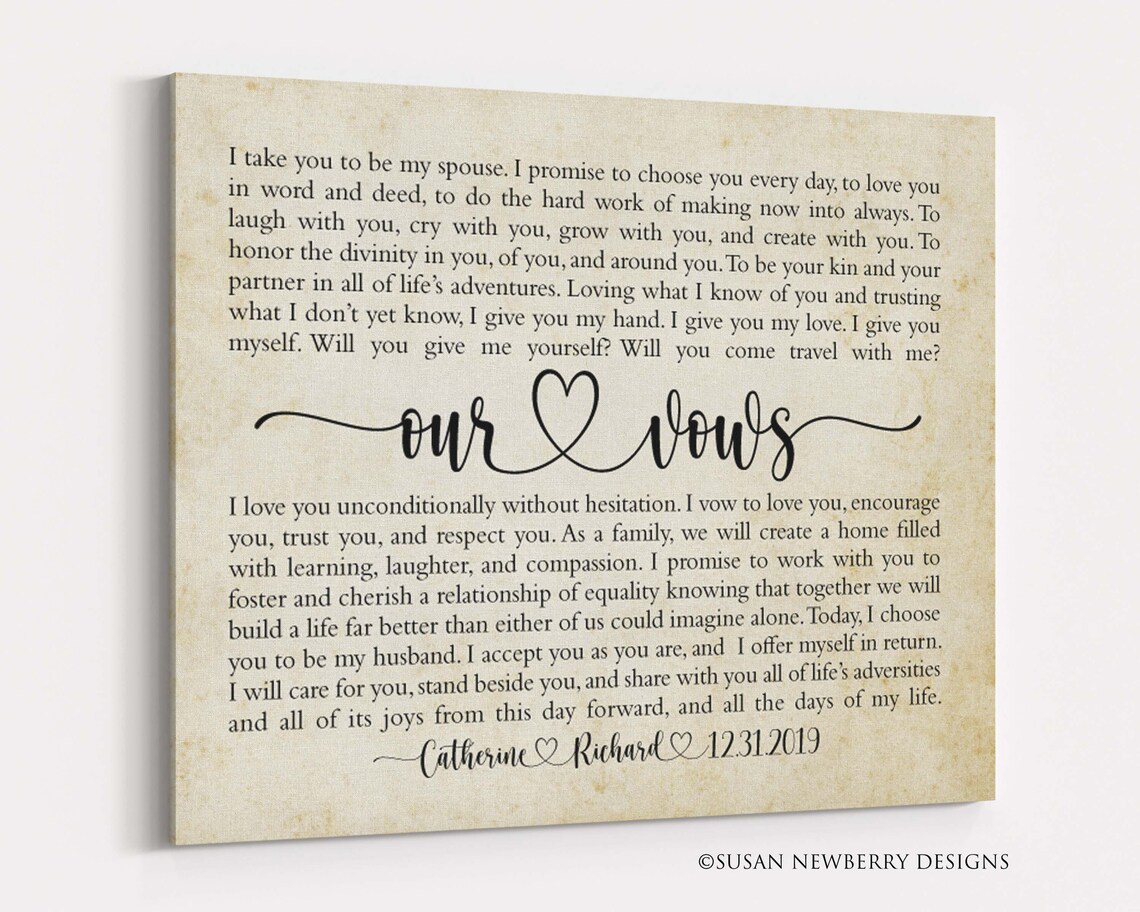 I take you to be my spouse. I promise to choose you every day, to love you
in word and deed, to do the hard work of making now into always. To
laugh with you, cry with you, grow with you, and create with you. To
honor the divinity in you, of you, and around you. To be your kin and your
partner in all of life's adventures. Loving what I know of you and trusting
what I don't yet know, I give you my hand. I give you my love. I give you
myself. Will you give me yourself? Will you come travel with me?
our vows
I love you unconditionally without hesitation. I vow to love you, encourage
you, trust you, and respect you. As a family, we will create a home filled
with learning, laughter, and compassion. I promise to work with you to
foster and cherish a relationship of equality knowing that together we will
build a life far better than either of us could imagine alone. Today, I choose
you to be my husband. I accept you as you are, and I offer myself in return.
I will care for you, stand beside you, and share with you all of life's adversities
and all of its joys from this day forward, and all the days of my life.
Catherine Richard 12.31.2019
©SUSAN NEWBERRY DESIGNS